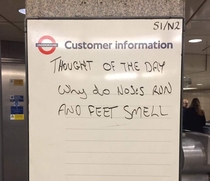 51/N2
Customer information
THOUGHT OF THE DAY
Why do NOSES RUN
AND FEET SMELL